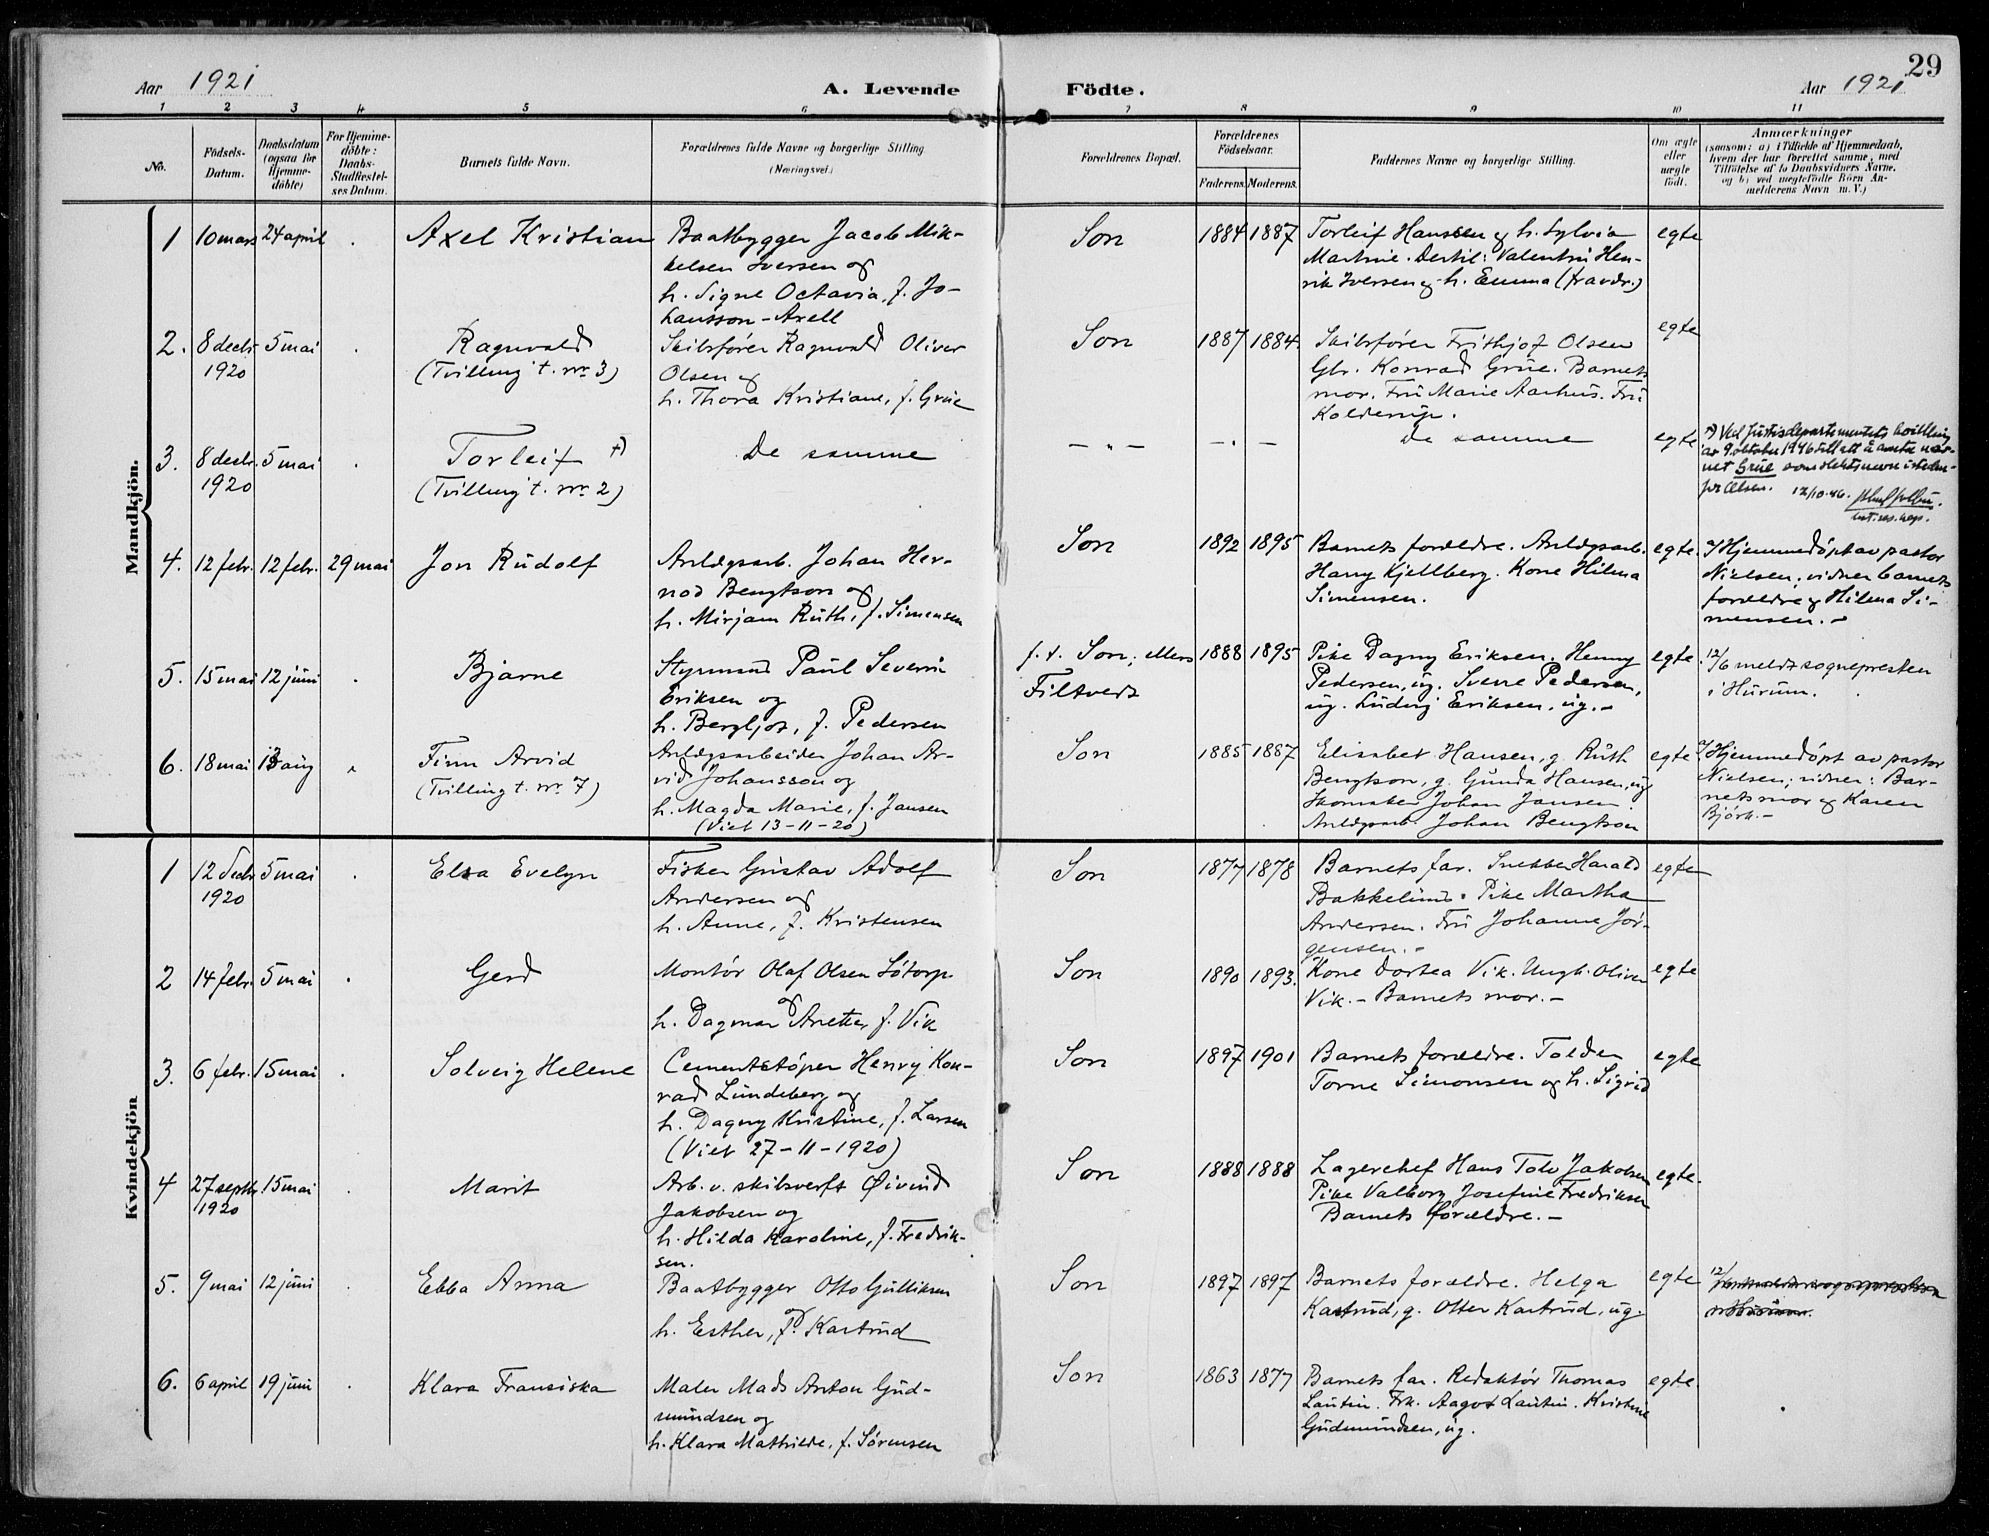 29
Aar 1921
A. Levende
Födte.
Aar 1921
1 2 3 4 5 6 7 8 9 10 11
No.
Födsels-
Datum.
Daabsdatum
(ogsaa for
Hjemme-
döbte)
For Hjemme-
döbte:
Daabs-
Stadfæstel-
ses Datum.
Barnets fulde Navn.
Forældrenes fulde Navne og borgerlige Stilling
(Næringsvei.)
Forældrenes Bopæl.
Forældrenes
Födselsaar.
Faderens. Moderens.
Faddernes Navne og borgerlige Stilling.
Om ægte
eller
uægte
födt.
Anmærkninger
(saasom: a) i Tilfælde af Hjemmedaab,
hvem der har forrettet samme, med
Tilföielse af to Daabsvidners Navne,
og b) ved uægtefödte Börn An-
melderens Navn m. V.)
Mandkjön.
1 10 mars 24 april . Axel Kristian
Baatbygger Jacob Mik-
kelsen Iversen og
h. Signe Octavia, f. Jo-
hansson-Axell
Son 1884 1887
Torleif Hanssen og h. Sylvia
Martine. Destil: Valentin Hen-
rik Iversen og h. Emma (fravær.)
egte
2. 8 decbr 5 mai .
1920
Ragnvald
(Tvilling t. nr. 3)
Skibsfører Ragnvald Oliver
Olsen og
h. Thora Kristiane, f. Grüe
Son 1887 1884.
Skibsfører Frithjof Olsen
Gbr. Konrad Grüe. Barnets
mor. Frü Marie Aarhus. Frü
Kolderup.
egte
3. 8 decbr. 5 mai .
1920
Torleif +)
(Tvilling t. nr. 2)
De samme
— „ — — „ —
De samme
egte
+) Ved Justisdepartementets bevilling
av 9 oktober 1946 tillatt å anta nav-
net Grüe som slektsnavn istedен-
for Olsen. 12/10.46.
4. 12 febr. 12 febr. 29 mai Jon Rüdolf
Anlægsarb. Johan Her-
nod Bengtson og
h. Mirjam Rüth, f. Simensen
Son 1892 1895
Barnets forældre. Anlægsarb.
Harry Kjellberg. Kone Hilma
Simensen.
egte.
Hjemmedøpt av pastor
Nielsen; vidner barnets
forældre og Hilma Si-
mensen. -
5. 15 mai 12 juni . Bjarne
Styrmand Paul Severin
Eriksen og
h. Bergljot, f. Pedersen
f. t. Son; ellers
Filtvedt
1888 1895
Pike Dagny Eriksen. Henny
Pedersen, üg. Sverre Pedersen,
üg. Lüdvig Eriksen, üg. -
egte.
12/6 meldt sognepresten
i Hürum.
6. 18 mai 13 aüg
Finn Arvid
(Tvilling t. nr. 7)
Anlægsarbeider Johan Ar-
vid Johansson og
h. Magda Marie, f. Jansen
(Viet 13-11-20)
Son 1885 1887
Elisabet Hansen, g. Rüth
Bengtson, g. Günda Hansen, üg
Skomaker Johan Jansen.
Anlægsarb. Johan Bengtson
egte
Hjemmedøpt av pastor
Nielsen; vidner: Bar-
nets mor og Karen
Bjørk. -
Kvindekjön
1 12 decbr 5 mai .
1920
Elsa Evelyn
Fisker Güstav Adolf
Andersen og
h. Anne, f. Kristensen
Son 1877 1878
Barnets far. Snekker Harald
Bakkelünd. Pike Martha
Andersen. Frü Johanne Jør-
gensen. -
egte
2 14 febr. 5 mai . Gerd
Montør Olaf Olsen Løtorp
og
h. Dagmar Anette, f. Vik
Son 1890 1893.
Kone Dortea Vik. Ungk. Oliver
Vik. - Barnets mor. -
egte
3. 6 febr. 15 mai . Solveig Helene
Cementstøper Henry Kon-
rad Lündeberg og
h. Dagny Kristine, f. Larsen
(Viet 27-11-1920)
Son 1897 1901
Barnets forældre. Tolder
Torne Simonsen og h. Sigrid
egte
4 27 septbr. 15 mai .
1920
Marit
Arb. v. skibsverft Øivind
Jakobsen og
h. Hilda Karoline, f. Fredrik-
sen.
Son 1888 1888
Lagerchef Hans Tolv Jakobsen
Pike Valborg Josefine Fredriksen
Barnets forældre. -
egte.
5. 9 mai 12 juni . Ebba Anna
Baatbygger Otto Gülliksen
og
h. Esther, f. Kastrüd
Son 1897 1897
Barnets forældre. Helga
Kastrüd, g. Otter Kastrüd, üg.
egte
12/6
6. 6 april 19 juni . Klara Fransiska
Maler Mads Anton Güd-
mündsen og
h. Klara Mathilde, f. Sørensen
Son 1863 1877
Barnets far. Redaktør Thomas
Lautin. Frk. Aagot Lautin. Kristine
Güdmündsen, üg.
egte.